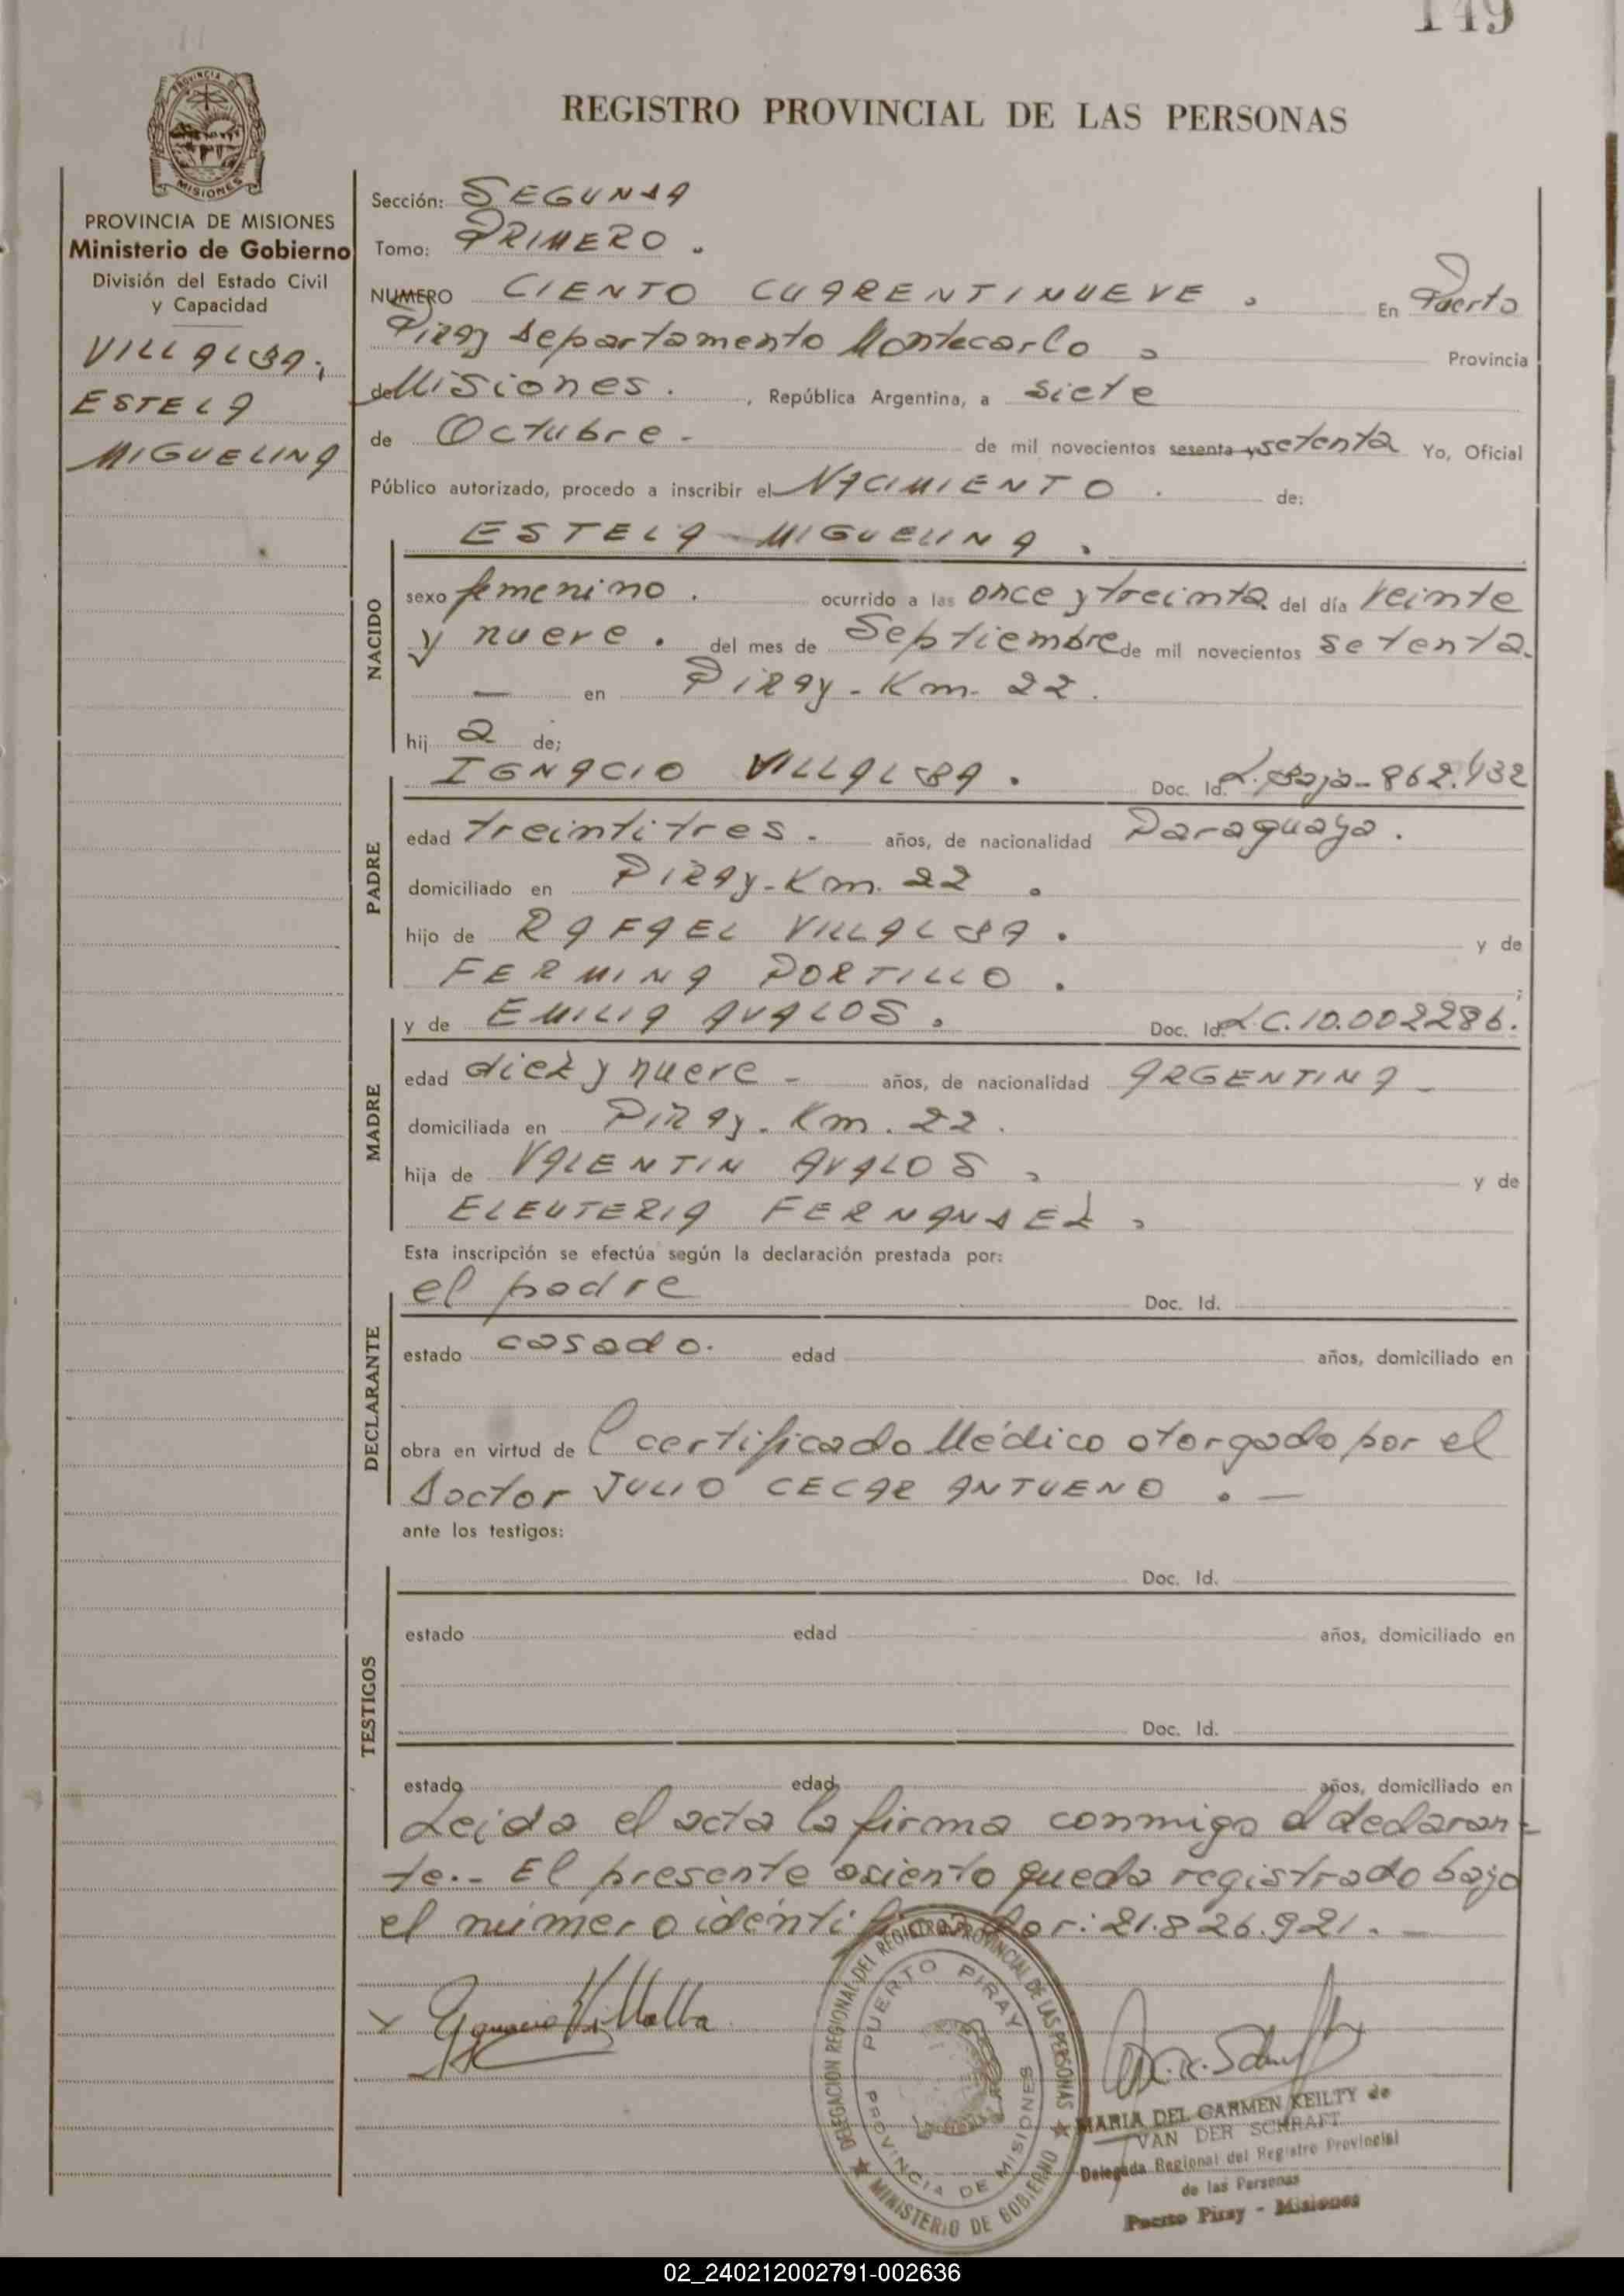 149
REGISTRO PROVINCIAL DE LAS PERSONAS
MISIONES
PROVINCIA DE MISIONES
Ministerio de Gobierno
División del Estado Civil
y Capacidad
VILLALBA,
ESTELA
MIGUELINA
Sección: SEGUNDA
Tomo: PRIMERO.
NUMERO CIENTO CUARENTINUEVE. En Puerto
Piray Departamento Montecarlo Provincia
de Misiones. , República Argentina, a siete
de Octubre - de mil novecientos sesenta y setenta Yo, Oficial
Público autorizado, procedo a inscribir el NACIMIENTO. de:
ESTELA MIGUELINA.
NACIDO
sexo femenino. ocurrido a las once y treinta del día veinte
y nueve. del mes de Septiembre de mil novecientos setenta.
— en Piray - Km. 22.
hij a de;
IGNACIO VILLALBA. Doc. Id.
PADRE
edad treintitres. años, de nacionalidad Paraguaya.
domiciliado en Piray - Km. 22.
hijo de RAFAEL VILLALBA. y de
FERMINA PORTILLO. ;
MADRE
y de EMILIA AVALOS. Doc. Id. L.C. 10.002286.
edad diez y nueve - años, de nacionalidad ARGENTINA -
domiciliada en Piray. Km. 22.
hija de VALENTIN AVALOS. y de
ELEUTERIA FERNANDEZ.
Esta inscripción se efectúa según la declaración prestada por:
DECLARANTE
el padre Doc. Id.
estado casado. edad años, domiciliado en
obra en virtud de l certificado Médico otorgado por el
Doctor JULIO CECAR ANTUENO. —
ante los testigos:
TESTIGOS
Doc. Id.
estado edad años, domiciliado en
Doc. Id.
estado edad años, domiciliado en
Leida el acta la firma conmigo el declaran-
te.- El presente asiento queda registrado bajo
el número identificador: 21.826.921. —
x Ygnacio Villalba
DELEGACION REGIONAL DEL REGISTRO PROVINCIAL DE LAS PERSONAS
MINISTERIO DE GOBIERNO
PUERTO PIRAY
PROVINCIA DE MISIONES
MARIA DEL CARMEN KEILTY de
VAN DER SCHRAFT
Delegada Regional del Registro Provincial
de las Personas
Puerto Piray - Misiones
02_240212002791-002636